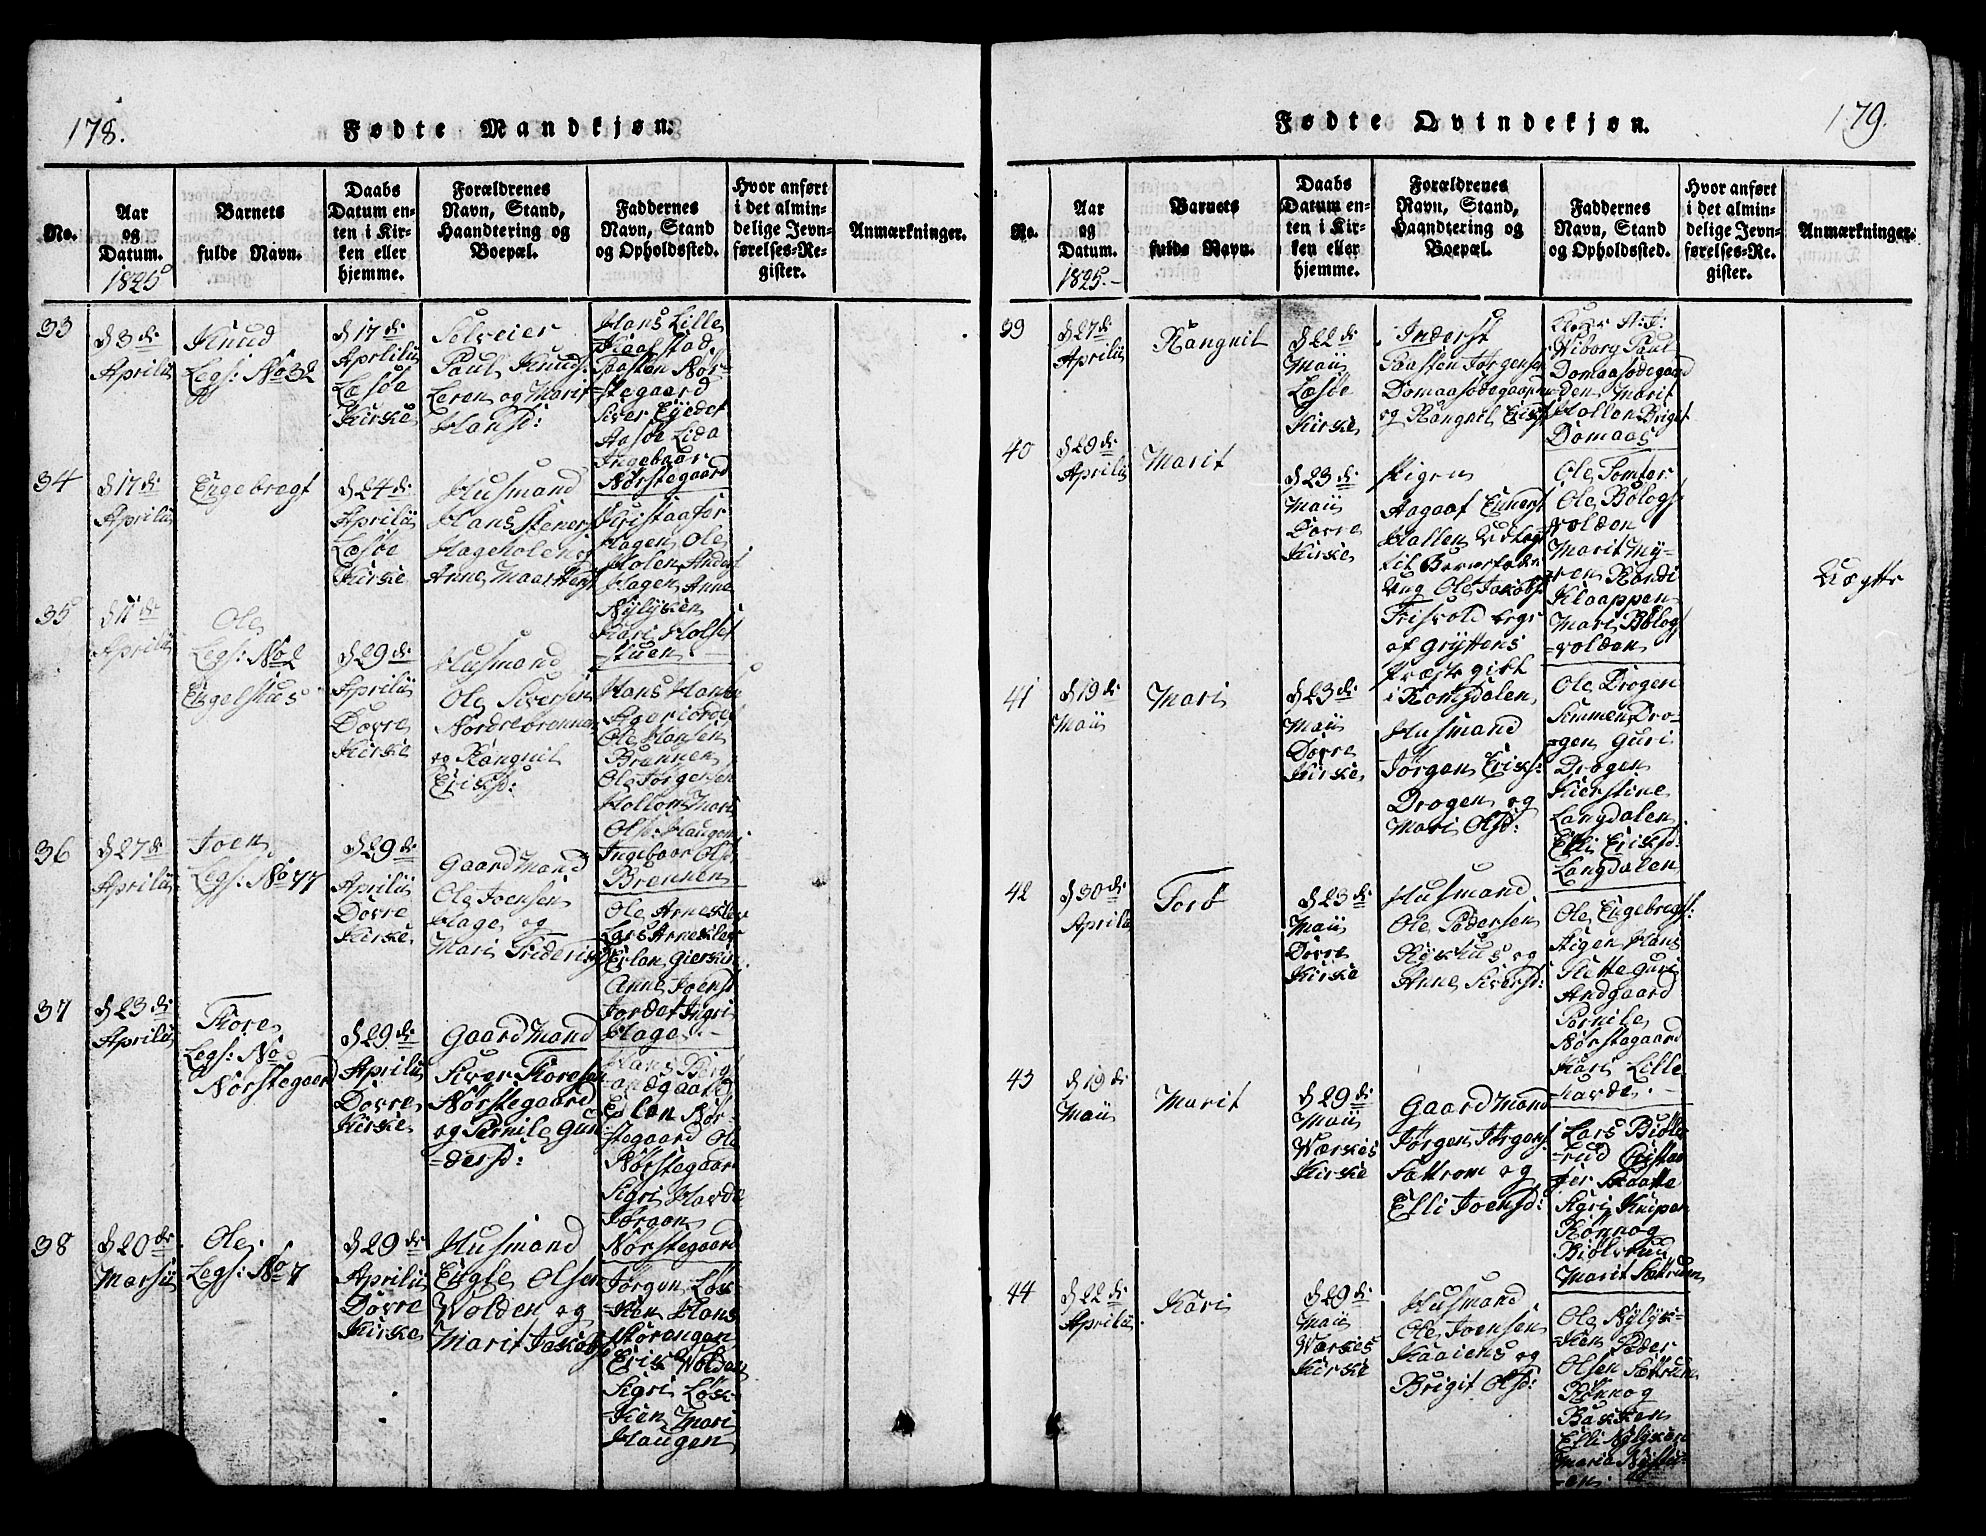 178.
Fødte Mandkjøn.
No.
Aar
og
Datum.
1825
Barnets
fulde Navn.
Daabs
Datum en-
ten i Kir-
ken eller
hjemme.
Forældrenes
Navn, Stand,
Haandtering og
Boepæl.
Faddernes
Navn, Stand
og Opholdssted.
Hvor anført
i det almin-
delige Jevn-
førelses-Re-
gister.
Anmærkninger.
33
d 3 de
Aprilii
Knud
Legs: No 32
d 17 de
Aprilii
Læsøe
Kirke
Selveier
Paul Knuds:
Leren og Marit
Hansd:
Hans Lille
Kaafstad
Paasten Nør-
-stegaard
Siver Eyedet
Aasøe Lida
Ingebaar
Nørstegaard
34
d 17 de
Aprilii
Engebregt
d 24 de
Aprilii
Læsøe
Kirke
Husmand
Hans Stener
Hageholen og
Anne
Kristaafer
Hagen Ole
Holen Anders
Hagen Anne
Nylyken
Kari Holset
Stuen
35
d 11 de
Aprilii
Ole
Legs: No 2
Engelshus
d 29 de
Aprilii
Dovre
Kirke
Husmand
Ole Siversen
Nordrebrennen
og Rangnil
Eriksd:
Hans Hansen
Ole Hansen
Brennen
Ole Jørgensen
Hollon Mari
Olsd: Haugen
Ingebaar Olsd
Brennen
36
d 27 de
Aprilii
Joen
Legs: No 77
d 29 de
Aprilii
Dovre
Kirke
Gaardmand
Ole Joensen
Hage og
Mari Friderigsd
Ole Arneklev
Lars Arneklev
Erlan Gierkin
Anne Joensd
Jordet Ingri
Hage
37
d 23 de
Aprilii
Tore
Legs: No
Nørstegaard
d 29 de
Aprilii
Dovre
Kirke
Gaardmand
Siver Toresen
Nørstegaard
og Pernile Gun
-dersd:
Hans Berg
-andgaard
Erlan Nør-
-stegaard Ole
Nørstegaard
Sigri Havde
Jørgan
Nørstegaard
38
d 20 de
Marsii
Ole
Legs: No 7
d 29 de
Aprilii
Dovre
Kirke
Husmand
Engle Olsen
Wolden og
Marit Jakobs
Jørgen Løk-
-ken Hans
Erik Wolden
Sigri Løk-
-ken Mari
Haugen
179.
Fødte Qvindekjøn.
No.
Aar
og
Datum.
1825.-
Barnets
fulde Navn.
Daabs
Datum en-
ten i Kir-
ken eller
hjemme.
Forældrenes
Navn, Stand,
Haandtering og
Boepæl.
Faddernes
Navn, Stand
og Opholdssted.
Hvor anført
i det almin-
delige Jevn-
førelses-Re-
gister.
Anmærkninger.
39
d 27 de
Aprilii
Rangnil
d 22 de
Maii
Læsøe
Kirke
Inderst
Paasten Jørgensen
Domaasødegaarden
og Rangnil Eriksd
Wiborg Paul
Domaasødegaard
-den Marit
Hollen Briget
Domaas
40
d 29 de
Aprilii
Marit
d 23 de
Maii
Dovre
Kirke
Pigen
Aagaat Einersd
Hallen Udlagt
til Barnefader
Ung Ole Jakobs
Frisvold
af Gryttens
Præstegield
i Romsdalen
Ole Tomter
Ole Bologs
-volden
Marit My-
-ren Randi
Klaappen
Mari Bologs
-volden
Uægte
41
d 19 de
Maii
Mari
d 23 de
Maii
Dovre
Kirke
Husmand
Jørgen Eriks:
Drogen og
Mari Olsd:
Ole Drogen
Simmen Dro-
-gen Guri
Drogen
Kierstine
Langdalen
Elli Eriksd:
Langdalen
42
d 30 de
Aprilii
Torø
d 23 de
Maii
Dovre
Kirke
Husmand
Ole Pedersen
Røkhus og
Anne Siversd:
Ole Engebregs:
Stigen Hans
Slette Guri
Andgaard
Pernile
Nørstegaard
Kari Lille
Havde
43
d 19 de
Maii
Marit
d 29 de
Maii
Wærkes
Kirke
Gaardmand
Jørgen Jørgens
Sættrom og
Elli Joensd:
Lars Biøl-
-rud Cristaa
fer Skaatte
Sigri Kniper
Rønnog
Biølvrud
Marit Sætrum
44
d 22 de
Aprilii
Kari
d 29 de
Maii
Wærkes
Kirke
Husmand
Ole Joensen
Kaaiens og
Brigit Olsd:
Ole Nylyk-
-ken Peder
Olsen Sættrum
Rønnog
Bakken
Elli Nylyken
Maria Nystu-
-en